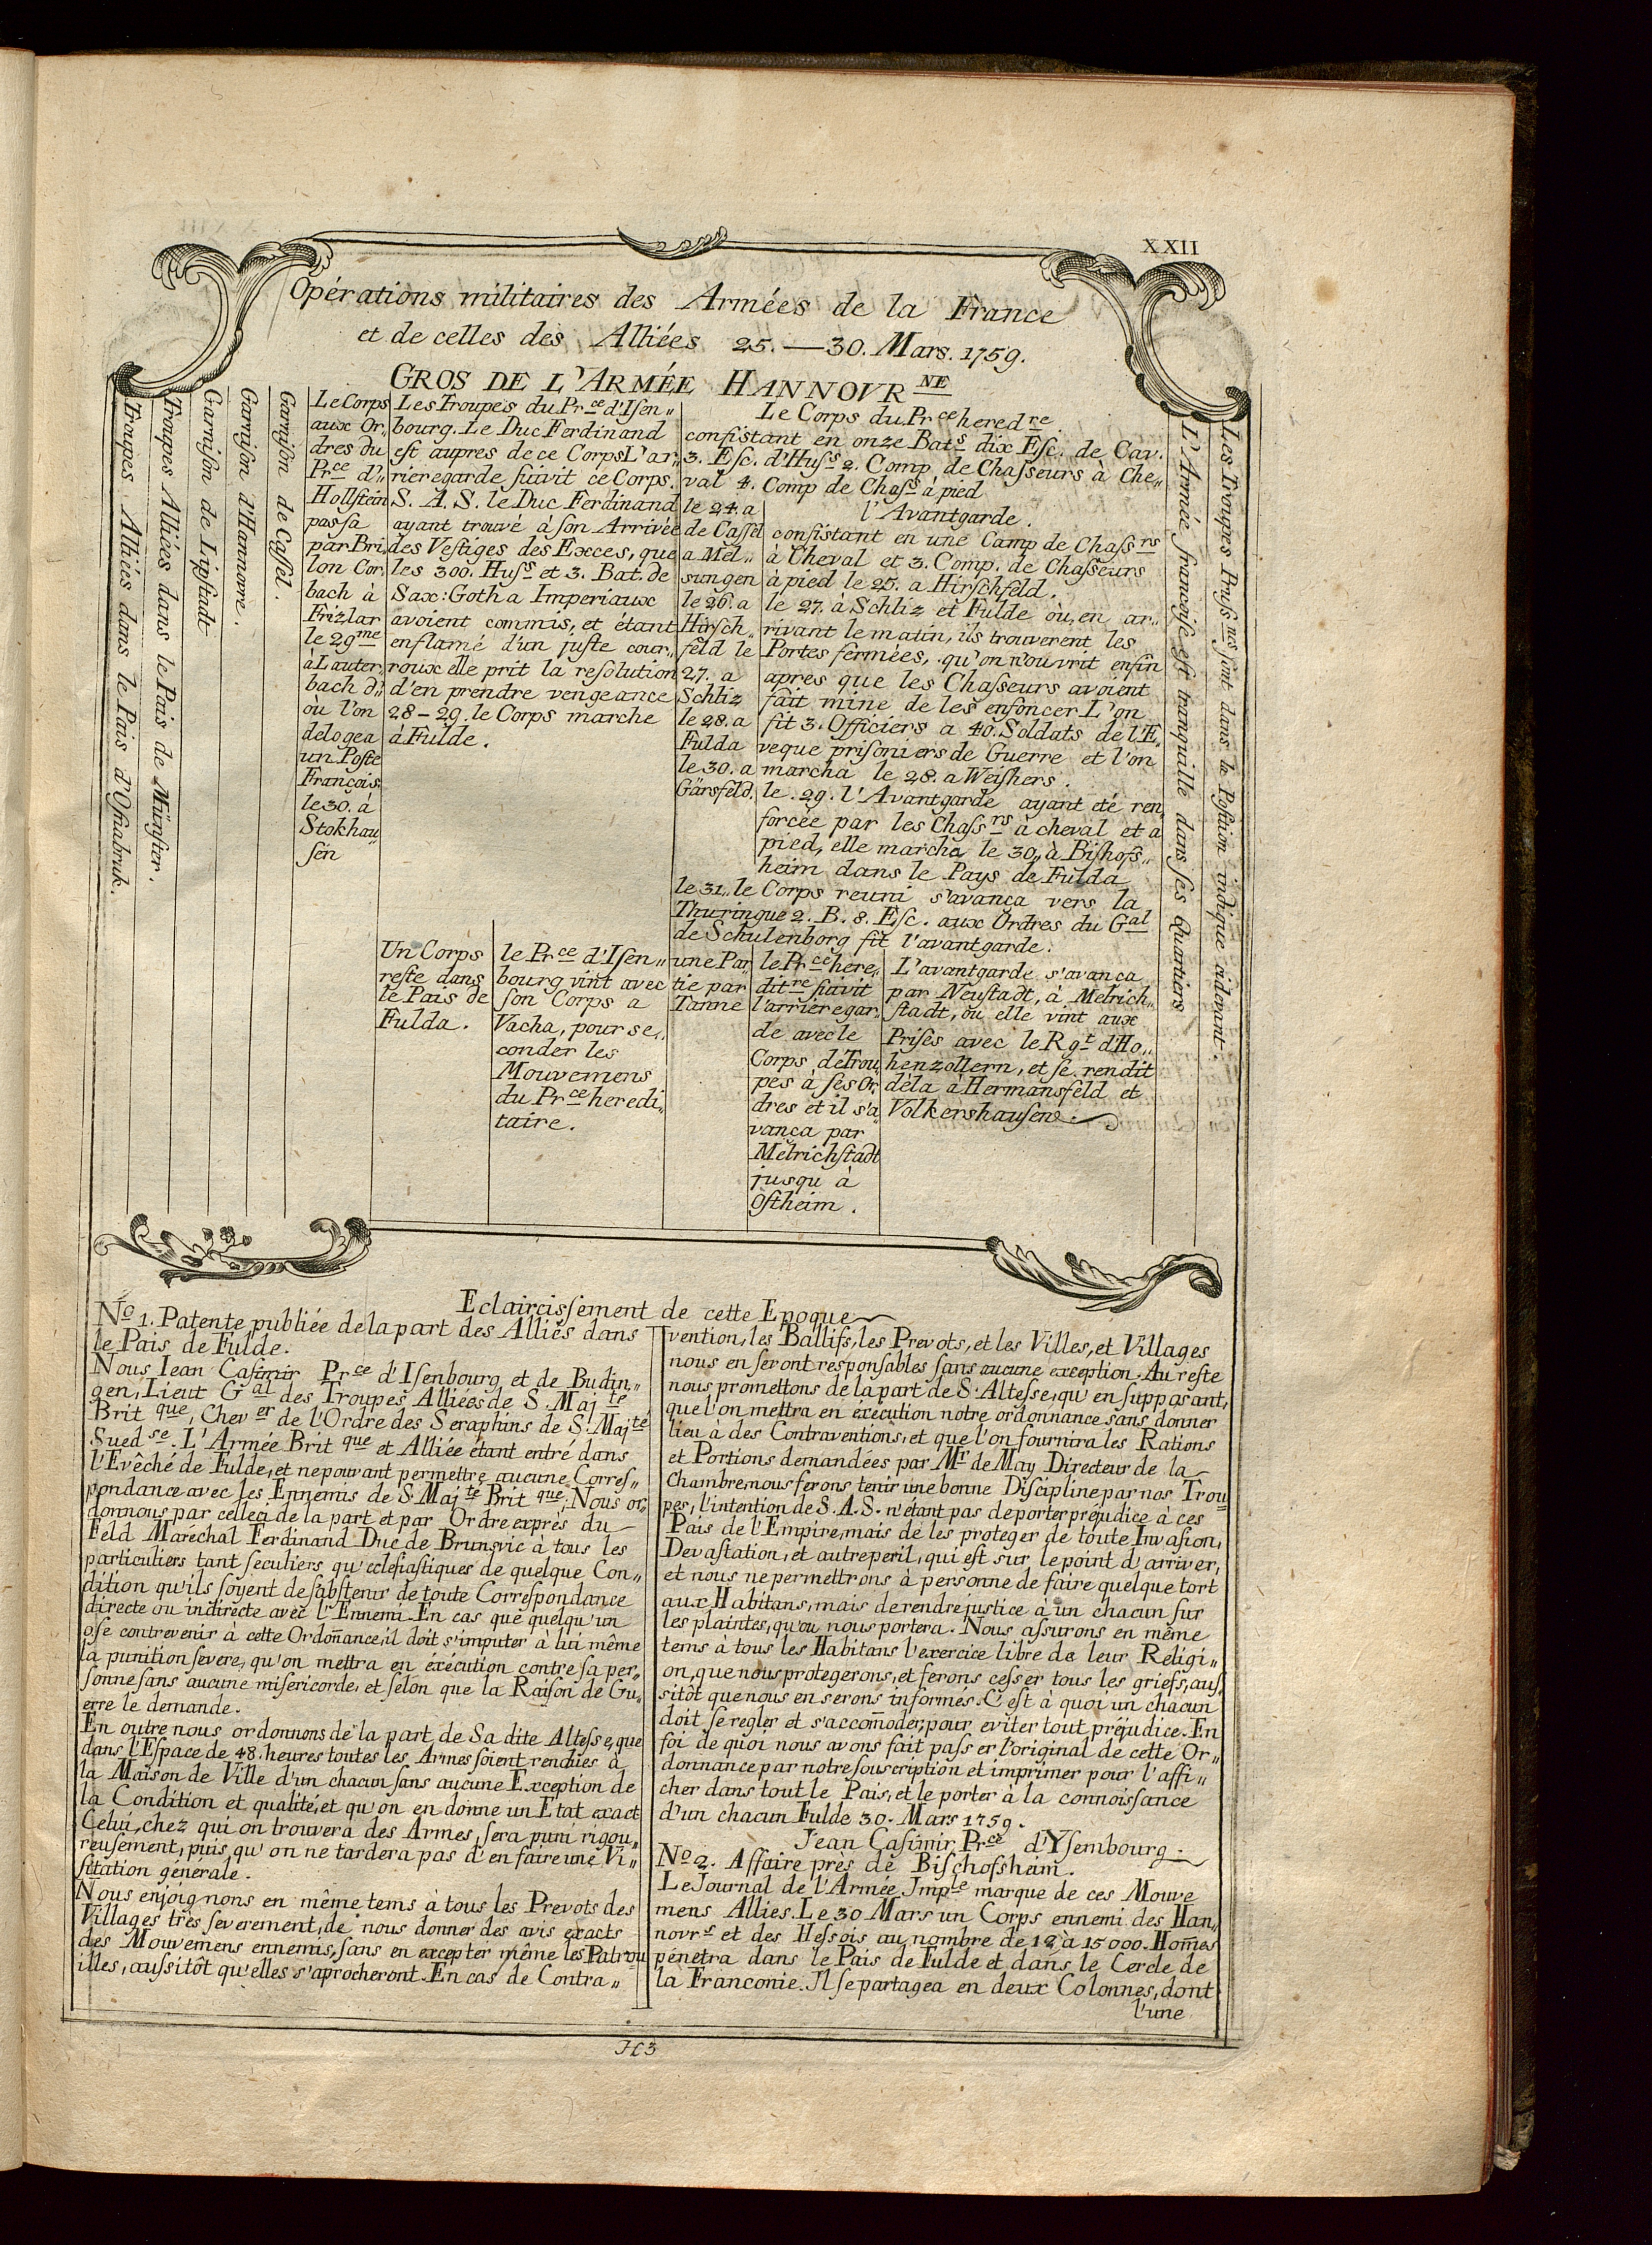 XXII
Opérations militaires des Armées de la France
et de celles des Alliées 25.—30. Mars. 1759.
GROS DE L'ARMÉE HANNOVR NE
Troupes Alliées dans le Païs d'Osnabruk.
Troupes Alliées dans le Païs de Münster.
Garnison de Lipstadt
Garnison d'Hannovre.
Garnison de Cassel.
Le Corps
aux Or„
dres du
Pr ce d'„
Hollstein
passa
par Bri
lon Cor„
bach à
Frizlar
le 29 me
à Lauter„
bach d'„
ou l'on
delogea
un Poste
François.
le 30. à
Stokhau„
sen
Les Troupes du Pr ce d'Isen„
bourg. Le Duc Ferdinand
est aupres de ce Corps L'ar„
rieregarde suivit ce Corps.
S. A. S. le Duc Ferdinand
ayant trouvé à son Arrivée
des Vestiges des Exces, que
les 300. Hus s et 3. Bat. de
Sax: Gotha Imperiaux
avoient commis, et étant
enflamé d'un juste cour„
roux elle prit la resolution
d'en prendre vengeance
28–29. le Corps marche
à Fulde.
Le Corps du Pr ce hered re.
consistant en onze Bat s dix Esc. de Cav.
3. Esc. d'Hus s 2. Comp. de Chasseurs à Che„
val 4. Comp de Chas s à pied
le 24. a
de Cassel
a Mel„
sungen
le 26. a
Hirsch„
feld le
27. a
Schliz
le 28. a
Fulda
le 30. a
Gärsfeld.
l'Avantgarde.
consistant en une Camp de Chass rs
à Cheval et 3. Comp. de Chasseurs
à pied le 25. a Hirschfeld.
le 27. à Schliz et Fulde où, en ar„
rivant le matin, ils trouverent les
Portes fermées, qu'on n'ouvrit enfin
apres que les Chasseurs avoient
fait mine de les enfoncer L'on
fit 3. Officiers a 40. Soldats de l'E„
veque prisoniers de Guerre et l'on
marcha le 28. a Weishers.
le .29. l'Avantgarde ayant eté ren„
forcée par les Chass rs à cheval et a
pied, elle marcha le 30„ à Bishofs„
heim dans le Pays de Fulda
le 31„ le Corps reuni s'avança vers la
Thuringue 2. B. 8. Esc. aux Ordres du G al
de Schulenborg fit l'avantgarde.
Un Corps
reste dans
le Païs de
Fulda.
le Pr ce d'Isen„
bourg vint avec
son Corps a
Vacha, pour se„
conder les
Mouvemens
du Pr ce heredi„
taire.
une Par„
tie par
Tanne
le Pr ce here„
dit re suivit
l'arrieregar„
de avec le
Corps de Trou„
pes à ses Or„
dres et il s'a„
vança par
Melrichstadt
jusqu à
Ostheim.
L'avantgarde s'avança
par Neustadt, à Melrich„
stadt, ou elle vint aux
Prises avec le Rg t d'Ho„
henzollern, et se rendit
dela à Hermansfeld et
Volkershausen.
L'Armée françoise est tranquille dans ses Quartiers
Les Troupes Pruss nes sont dans la Position indiquée cidevant.
Eclaircissement de cette Epoque
No 1. Patente publiée de la part des Alliés dans
le Païs de Fulde.
Nous Iean Casimir Pr ce d'Isenbourg et de Budin„
gen, Lieut G al des Troupes Alliées de S. Maj té
Brit que, Chev er de l'Ordre des Seraphins de S. Maj té
Sued se. L'Armée Brit que et Alliée étant entré dans
l'Evêché de Fulde, et ne pouvant permettre aucune Corres„
pondance avec les Ennemis de S. Maj té Brit que, Nous or„
donnons par celleci de la part et par Ordre exprès du
Feld Maréchal Ferdinand Duc de Brunsvic à tous les
particuliers tant seculiers qu'eclesiastiques de quelque Con„
dition qu'ils soyent de s'abstenir de toute Correspondance
directe ou indirecte avec l'Ennemi. En cas que quelqu'un
ose contrevenir à cette Ordoñance, il doit s'imputer à lui même
la punition severe, qu'on mettra en éxécution contre sa per„
sonne sans aucune misericorde, et selon que la Raison de Gu„
erre le demande.
En outre nous ordonnons de la part de Sa dite Altesse, que
dans l'Espace de 48. heures toutes les Armes soient rendües à
la Maison de Ville d'un chacun sans aucune Exception de
la Condition et qualité, et qu'on en donne un Etat exact
Celui, chez qui on trouvera des Armes, sera puni rigou„
reusement, puis, qu'on ne tardera pas d'en faire une Vi„
sitation generale.
Nous enjoignons en même tems à tous les Prevots des
Villages très severement, de nous donner des avis exacts
des Mouvemens ennemis, sans en excepter même les Patrou
illes, aussitôt qu'elles s'aprocheront. En cas de Contra„
vention, les Ballifs, les Prevots, et les Villes, et Villages
nous en seront responsables sans aucune exception. Au reste
nous promettons de la part de S. Altesse, qu'en supposant,
que l'on mettra en éxécution notre ordonnance sans donner
lieu à des Contraventions, et que l'on fournira les Rations
et Portions demandées par Mr de May Directeur de la
Chambre nous ferons tenir une bonne Discipline par nos Trou„
pes, l'intention de S. A. S. n'étant pas de porter préjudice à ces
Païs de l'Empire, mais de les proteger de toute Invasion,
Devastation, et autre peril, qui est sur le point d'arriver,
et nous ne permettrons à personne de faire quelque tort
aux Habitans, mais de rendre justice à un chacun sur
les plaintes, qu'ou nous portera. Nous assurons en même
tems à tous les Habitans l'exercice libre de leur Religi„
on, que nous protegerons, et ferons cesser tous les griefs, aus„
sitôt que nous en serons informés. C'est à quoi un chacun
doit se regler et s'accom̃oder, pour eviter tout préjudice. En
foi de quoi nous avons fait passer l'original de cette Or„
donnance par notre souscription et imprimer pour l'affi„
cher dans tout le Païs, et le porter à la connoissance
d'un chacun Fulde 30. Mars 1759.
Jean Casimir, Pr ce d'Ysembourg.
No 2. Affaire près de Bischofsheim.
Le Journal de l'Armée Jmp le marque de ces Mouve
mens Allies. Le 30 Mars un Corps ennemi des Han„
novr s et des Hessois au nombre de 12 à 15000. Hom̃es
pénetra dans le Païs de Fulde et dans le Cercle de
la Franconie. Il se partagea en deux Colonnes, dont
l'une
H3